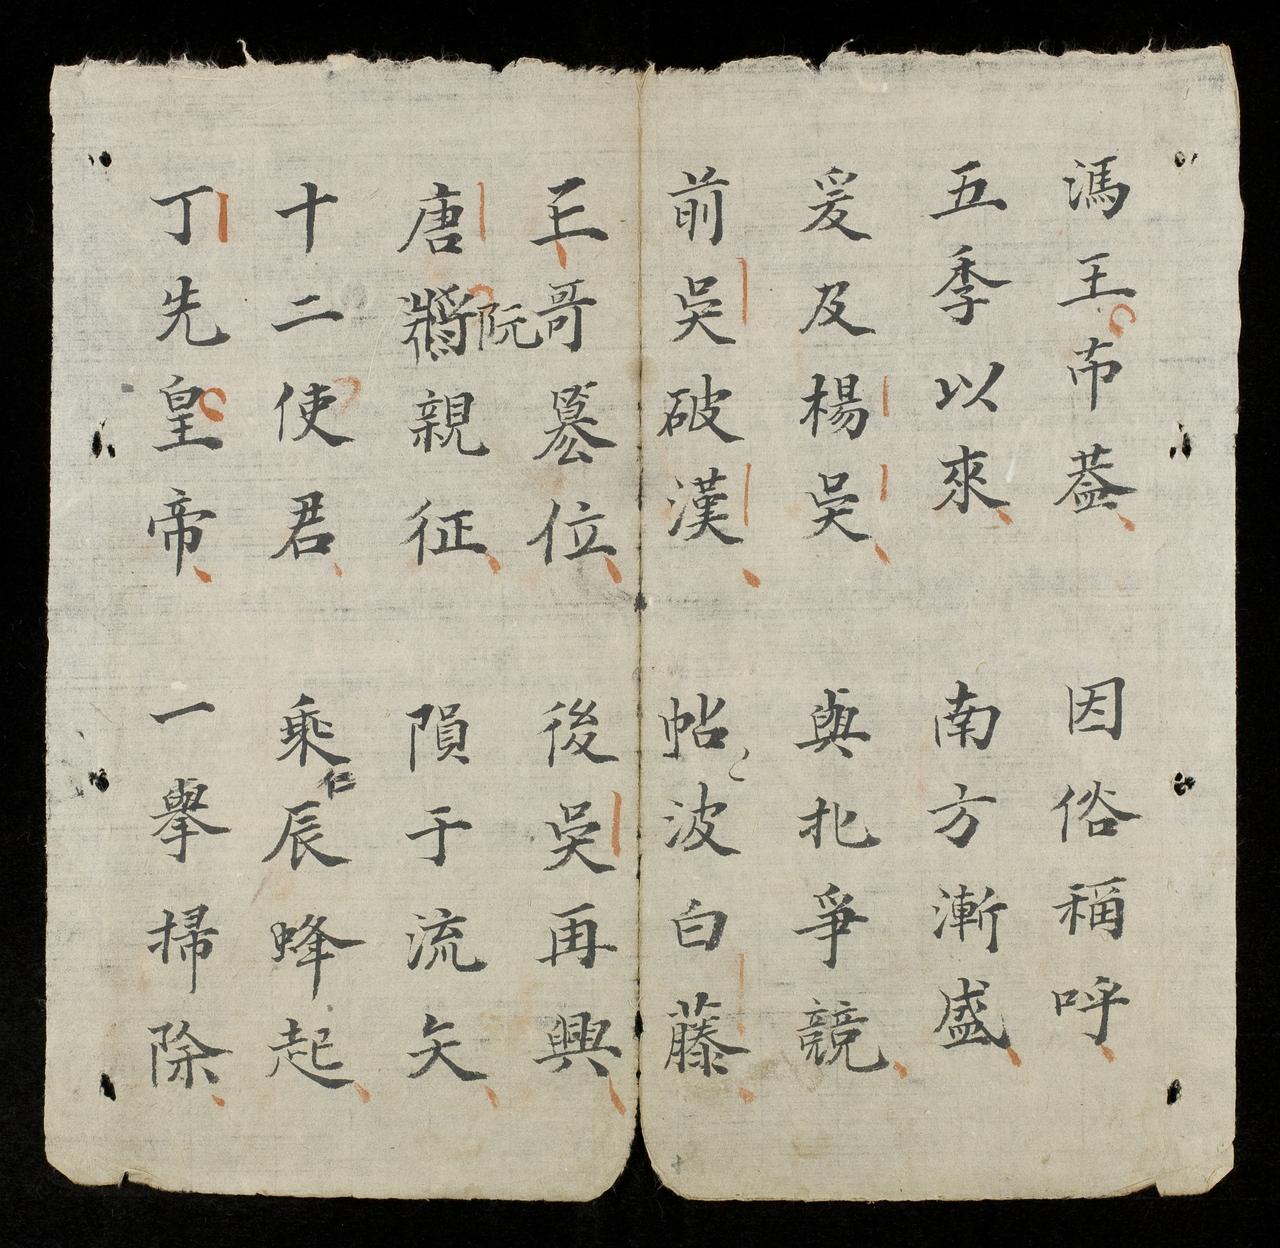 馮王布葢 因俗稱呼
五季以來 南方漸盛
爰及楊吳 與北爭競
前吳破漢 帖波白藤
三哥篡位 後吳再興
唐阮將親征 隕于流矢
十二使君 乘辰仁蜂起
丁先皇帝 一舉掃除